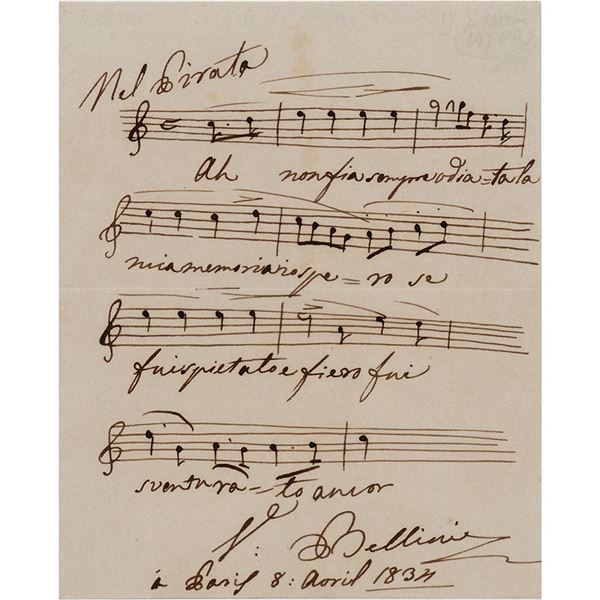 Nel Pirata
Ah non fia sempre odia=ta la
mia memoria io spe=ro se
fui spietato e fiero fui
sventura=to ancor
V: Bellini
à Paris 8: Avril 1834